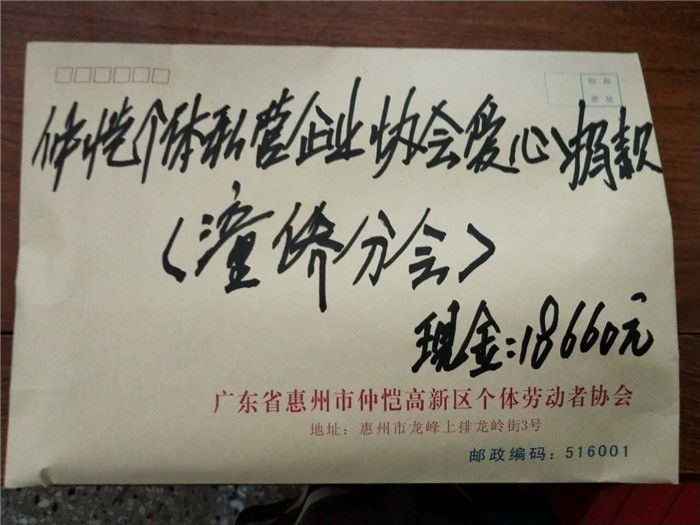 贴 邮
票 处
仲恺个体私营企业协会爱心捐款
(潼侨分会)
现金:18660元
广东省惠州市仲恺高新区个体劳动者协会
地址:惠州市龙峰上排龙岭街3号
邮政编码:516001